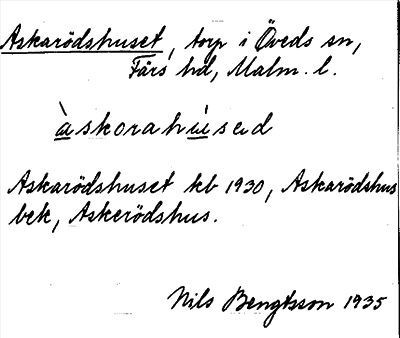 Askarödshuset, torp i Öveds sn,
Färs hd, Malm. l.
àskorahúsad
Askarödshuset kb 1930, Askarödshus
bek, Askerödshus.
Nils Bengtsson 1935